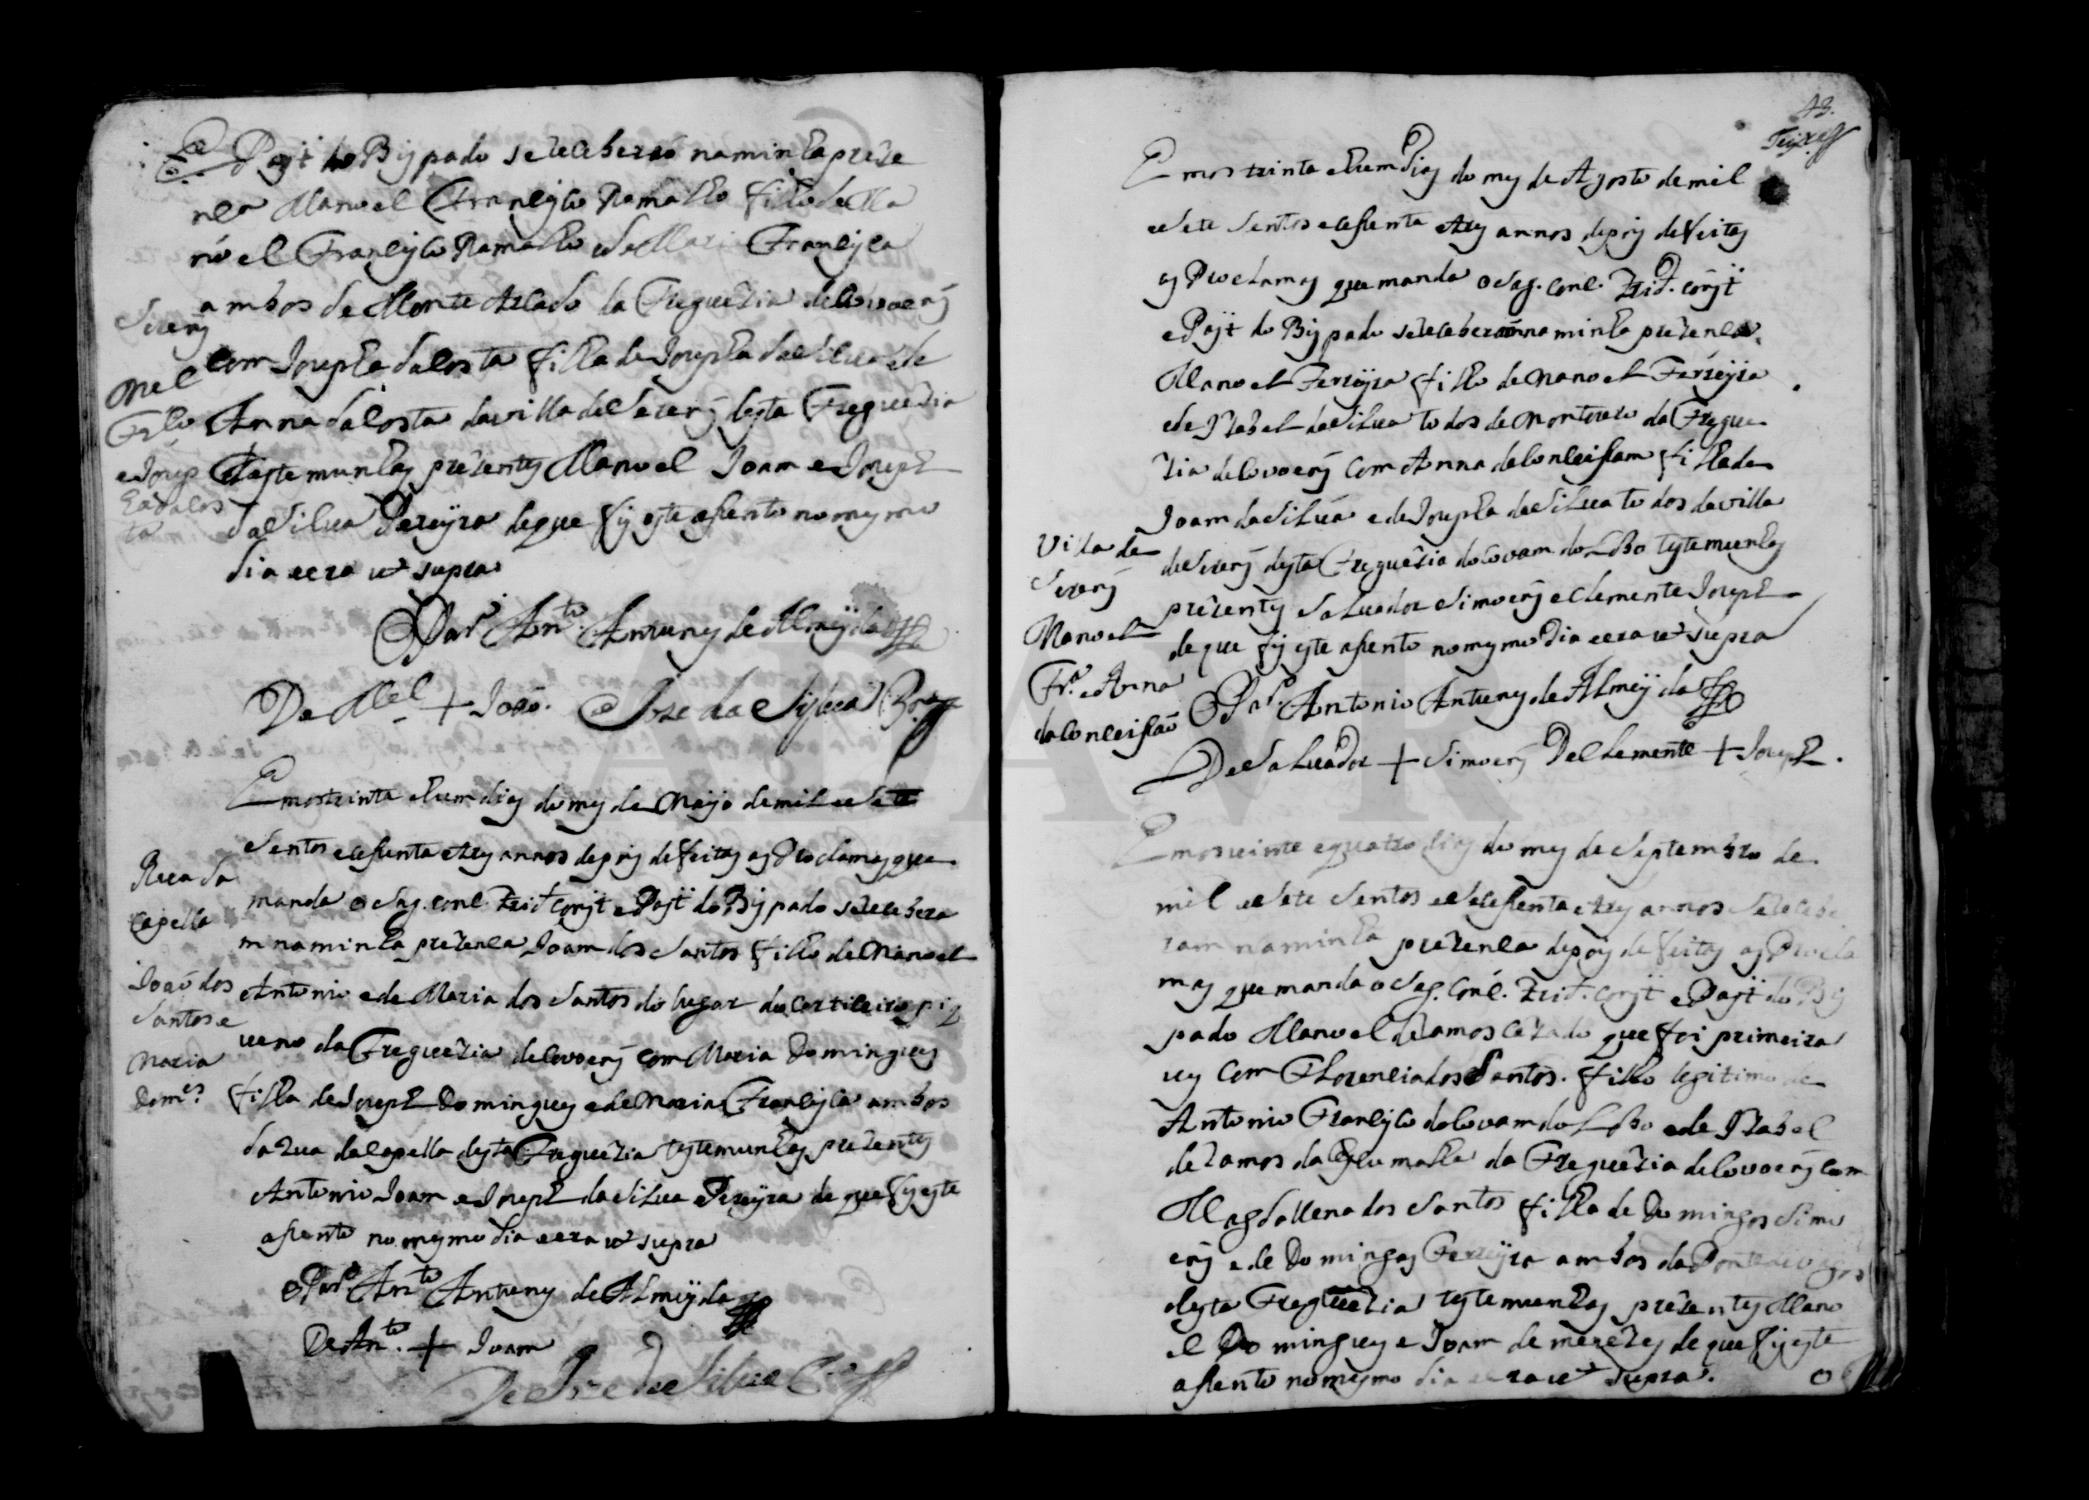 e Posit do Bispado se receberaõ na minha preze
nca Manoel Francisco Ramalho filho de Ma
noel Francisco Ramalho e de Maria Francisca
ambos de Monte Arcado da Freguezia de Covoens
com Josepha da Costa filha de Josepha da Silva e de
Anna da Costa da villa de Serem desta Freguezia
testemunhas prezentes Manoel Joam e Joseph
da Silva Pereyra de que fis este asento no mesmo
dia e era ut supra
O Par.º An.to Antunes de Almeyda
De M.el + Joaõ. Joze da Sylva
Serem
Mel
Fr.co
e Josep
ha da Cos
ta
Em os trinta e hum dias do mes de Mayo de mil e sete
sentos e cesenta e tres annos depois de feitas as Proclamas que
manda o Sag. Conc. Trid. Const e Posit do Bispado se recebera
m na minha prezenca Joam dos Santos filho de Manoel
Antonio e de Maria dos Santos do lugar do Corticeiro piq
ueno da Freguezia de Covoens com Maria Domingues
filha de Joseph Domingues e de Maria Francisca ambos
da Rua da Capella desta Freguezia testemunhas prezentes
Antonio Joam e Joseph da Silva Pereyra de que fis este
asento no mesmo dia e era ut supra
O Par.º An.to Antunes de Almeyda
De An.to + Joam
De Joze da Silva
Rua da
Capella
Joaõ dos
Santos e
Maria
Dom.es
43.
Em os trinta e hum dias do mes de Agosto de mil
e sete sentos e cesenta e tres annos depois de feitas
as Proclamas que manda o Sag. Conc. Trid. Const
e Posit do Bispado se receberaõ na minha prezenca
Manoel Ferreyra filho de Manoel Ferreyra
e de Izabel da Silva todos de Montouro da Fregue
zia de Covoens com Anna da Conceisam filha de
Joam da Silva e de Josepha da Silva todos da villa
de Serem desta Freguezia do Covam do Lobo testemunhas
prezentes Salvador Simoens e Clemente Joseph
de que fis este asento no mesmo dia e era ut supra
O Par.º Antonio Antunes de Almeyda
De Salvador + Simoens De Clemente + Joseph.
Villa de
Serem
Manoel
Fr.ª e Anna
da Conceisaõ
Em os vinte e quatro dias do mes de Septembro de
mil e sete sentos e cesenta e tres annos se recebe
ram na minha prezenca depois de feitas as Procla
mas que manda o Sag. Conc. Trid. Const e Posit do Bis
pado Manoel de Ramos cazado que foi primeira
ves com Florencia dos Santos. filho legitimo de
Antonio Francisco do Covam do Lobo e de Izabel
de Ramos da da Freguezia de Covoens com
Magdallena dos Santos filha de Domingos Simo
ens e de Domingas Ferreyra ambos da Ponte de Vagos
desta Freguezia testemunhas prezentes Mano
el Domingues e Joam de menezes de que fis este
asento no mesmo dia e era ut supra.
O
ADAVR